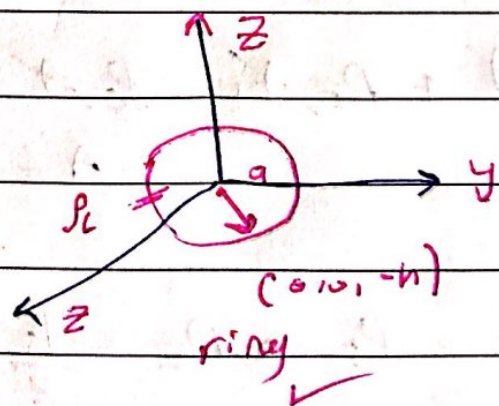 Z
a
y
ρL
(0,0,-h)
Z
ring